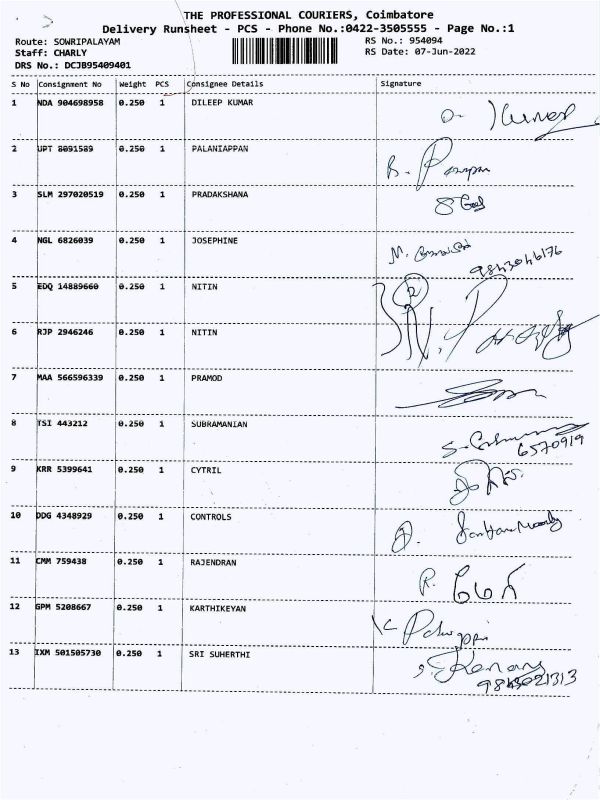 THE PROFESSIONAL COURIERS, Coimbatore
Delivery Runsheet - PCS - Phone No.:0422-3505555 - Page No.:1
Route: SOWRIPALAYAM RS No.: 954094
Staff: CHARLY RS Date: 07-Jun-2022
DRS No.: DCJB95409401
S No Consignment No Weight PCS Consignee Details Signature
1 NDA 904698958 0.250 1 DILEEP KUMAR
2 UPT 8091589 0.250 1 PALANIAPPAN
3 SLM 297020519 0.250 1 PRADAKSHANA
4 NGL 6826039 0.250 1 JOSEPHINE
9843046176
5 EDQ 14889660 0.250 1 NITIN
6 RJP 2946246 0.250 1 NITIN
7 MAA 566596339 0.250 1 PRAMOD
8 TSI 443212 0.250 1 SUBRAMANIAN
6570919
9 KRR 5399641 0.250 1 CYTRIL
10 DDG 4348929 0.250 1 CONTROLS
11 CMM 759438 0.250 1 RAJENDRAN
12 GPM 5208667 0.250 1 KARTHIKEYAN
13 IXM 501505730 0.250 1 SRI SUHERTHI
9843021313